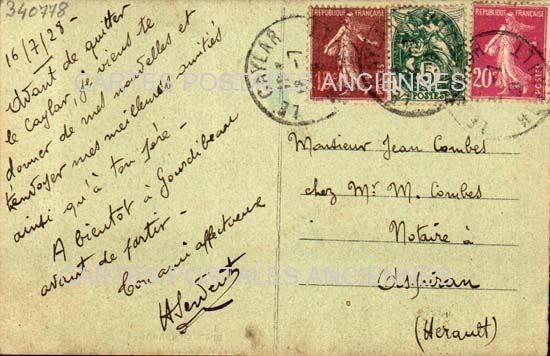 340778
16/7/28-
Avant de quitter
le Caylar, je viens te
donner de mes nouvelles et
t'envoyer mes meilleures amitiés
ainsi qu'à ton
A bientôt à
avant de partir-
Ton ami affectueux
REPUBLIQUE FRANÇAISE
15
POSTES
5
POSTES
REPUBLIQUE FRANÇAISE
20c
LE CAYLAR
CARTES POSTALES ANCIENNES
Monsieur Jean Combes
chez Mr M. Combes
Notaire à
Aspiran
(Hérault)
CARTES POSTALES ANCIENNES